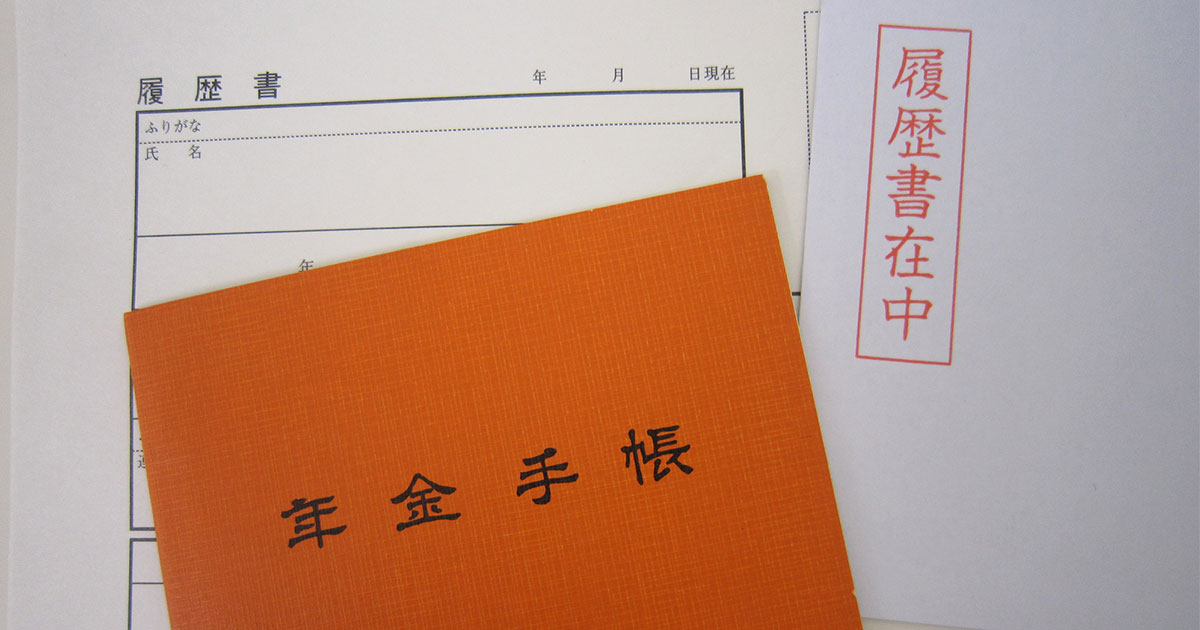 履歴書
年 月 日現在
ふりがな
氏 名
年
年金手帳
履歴書在中